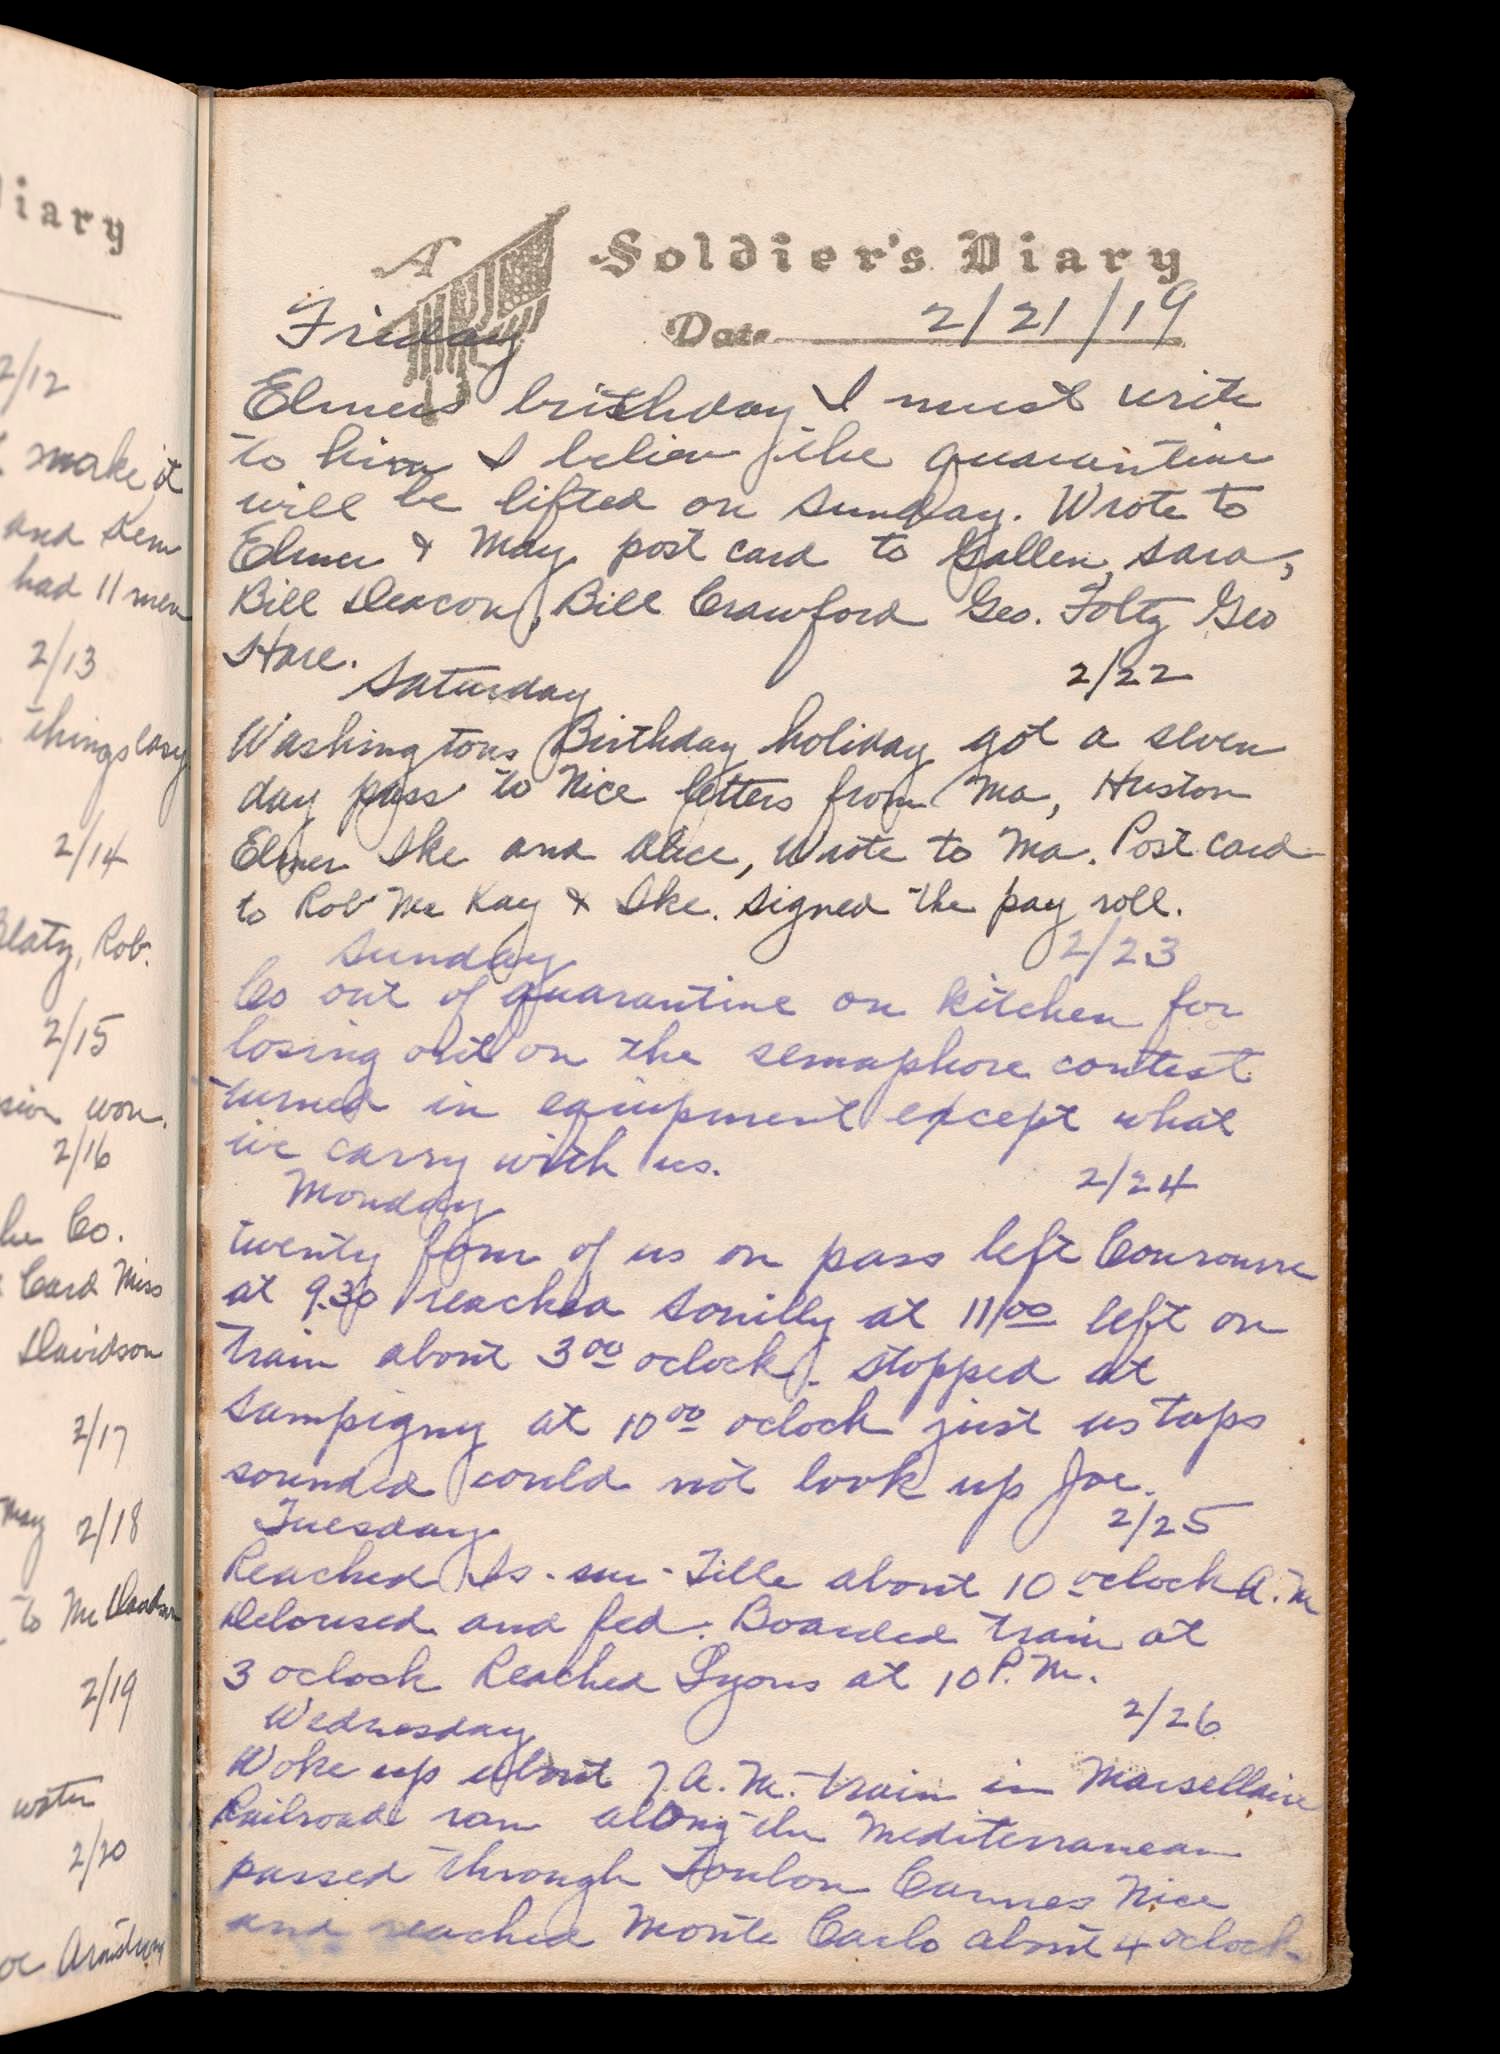 iary
2/12
make it
and Sem
had 11 men
2/13
things easy
2/14
Beaty, Rob.
2/15
sion won.
2/16
he Co.
Card Miss
Davidson
2/17
May 2/18
to Mc
2/19
water
2/20
A Soldier's Diary
Friday Date 2/21/19
Elmers brithday I must write
to him I believ the quarantine
will be lifted on Sunday. Wrote to
Elmer & May post card to Gallen, Sara,
Bill Deacon, Bill Crawford Geo. Foltz Geo
Hare.
Saturday 2/22
Washingtons Birthday holiday got a seven
day pass to Nice letters from Ma, Huston
Elmer Ike and Alice, Wrote to Ma. Post card
to Rob Mc Kay & Ike. Signed the pay roll.
Sunday 2/23
Co out of quarantine on kitchen for
losing out on the semaphore contest
turned in equipment except what
we carry with us.
Monday 2/24
twenty four of us on pass left
at 9.30 reached Souilly at 11/00 left on
train about 3 00 oclock. stopped at
Sampigny at 10 00 oclock just as taps
sounded could not look up Joe.
Tuesday 2/25
Reached Is-sur-Tille about 10 oclock A.M
Deloused and fed. Boarded train at
3 oclock Reached Lyons at 10 P.M.
Wednesday 2/26
Woke up about 7 A.M. train in Marsellaise
Railroad ran along the Mediterranean
passed through Toulon Cannes Nice
and reached Monte Carlo about 4 oclock